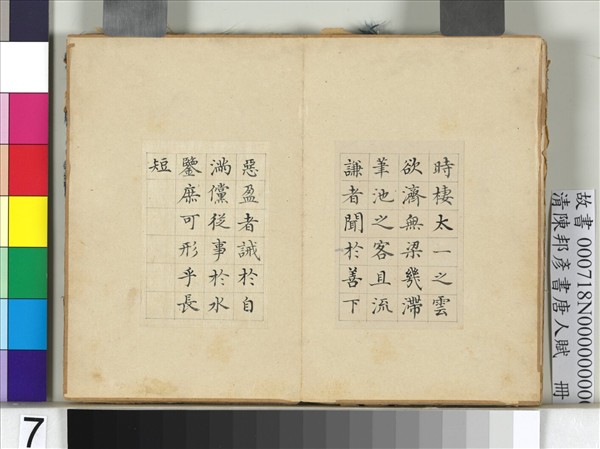 時棲太一之雲
欲濟無梁幾滯
筆池之客且流
謙者聞於善下
惡盈者誡於自
滿儻從事於水
鑒庶可形乎長
短
故書 000718N000000000
清陳邦彥書唐人賦 冊
7